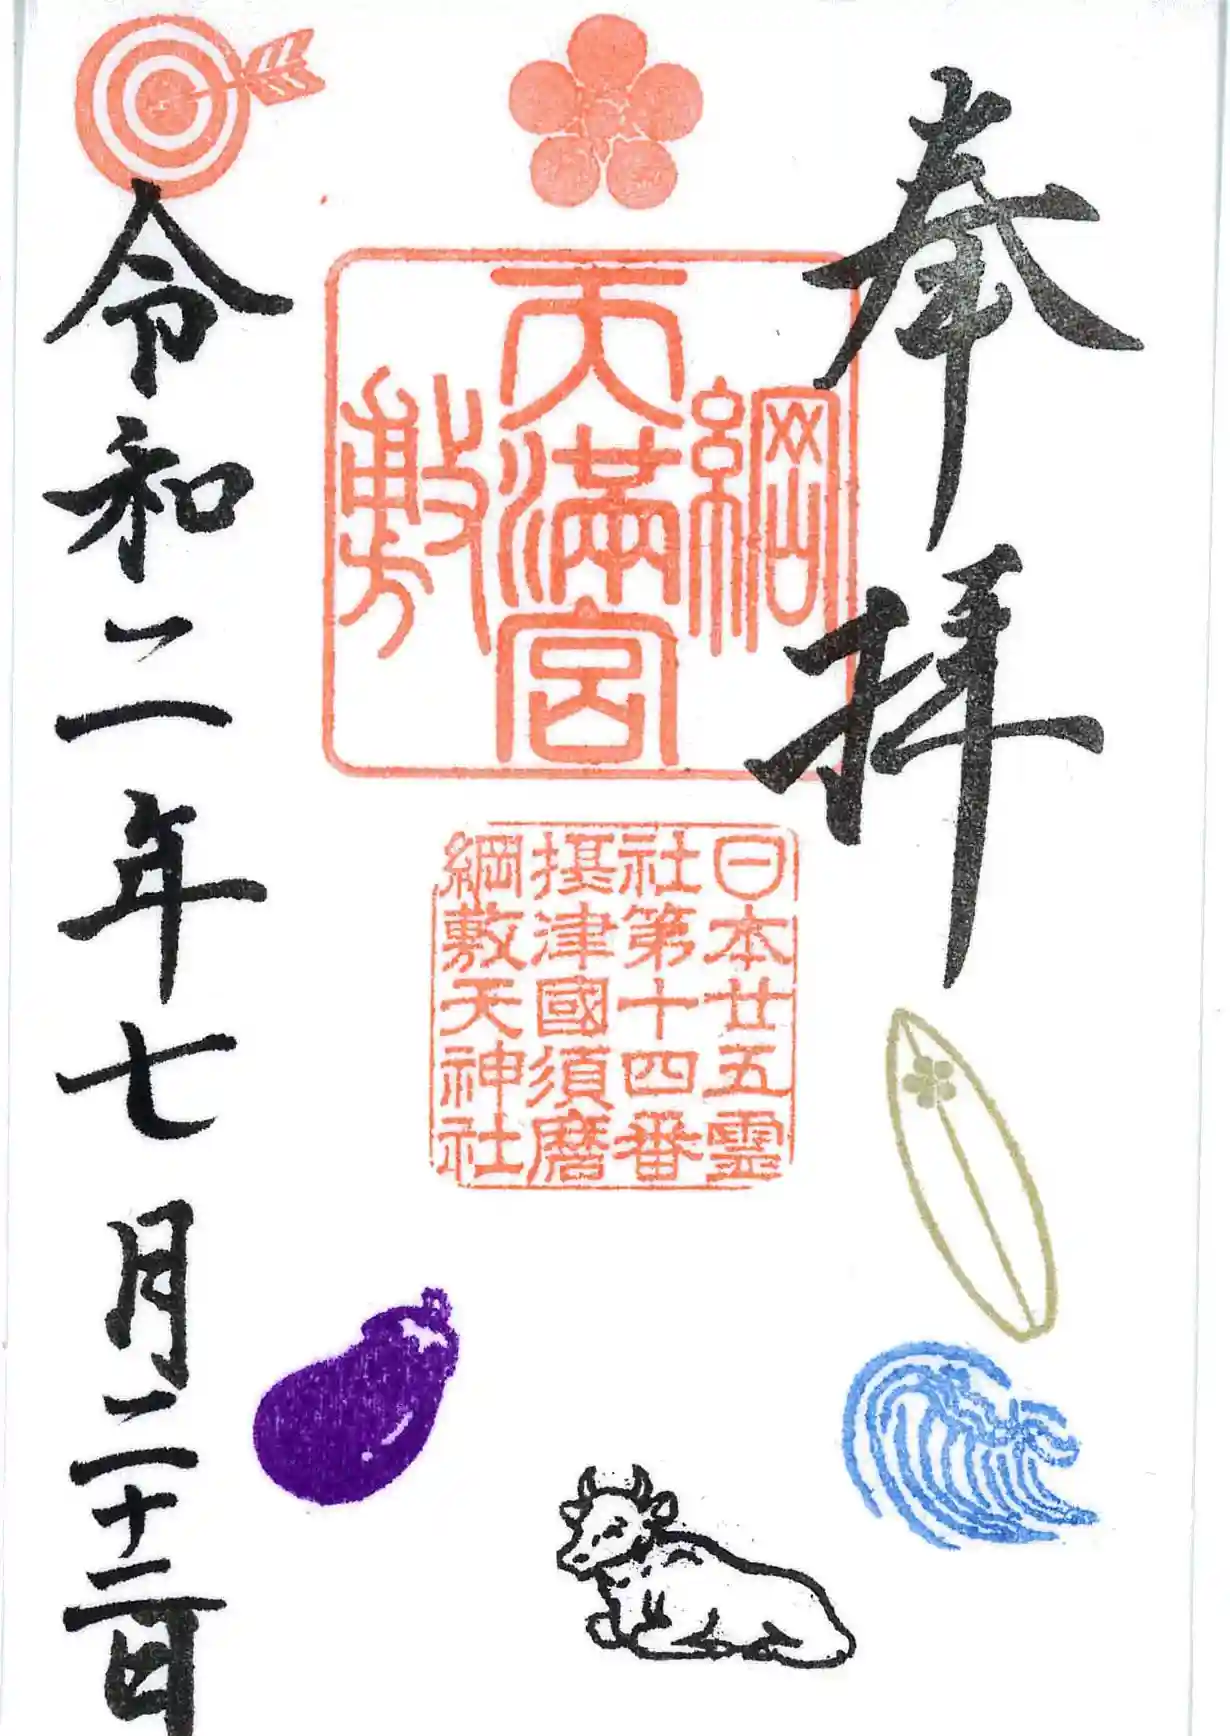 奉拝
綱
天満宮
敷
日本廿五霊
社第十四番
摂津國須磨
綱敷天神社
令和二年七月二十二日